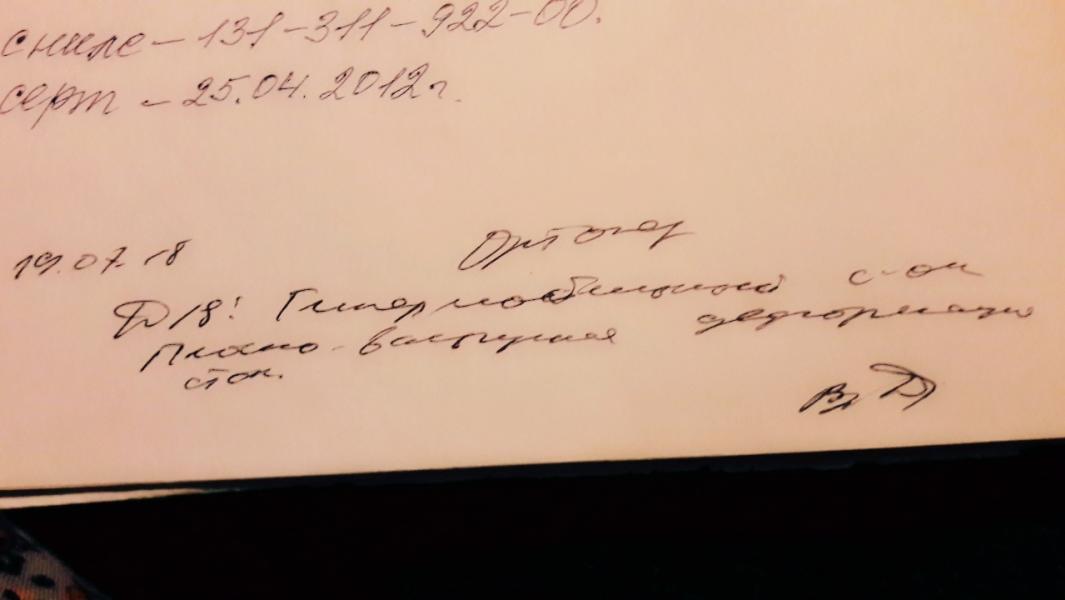 снилс – 131-311-922-00.
серт – 25.04.2012г.
Ортопед
19.07.18
D/s: Гипермобильный с-ом
Плоско-вальгусная деформация
стоп.